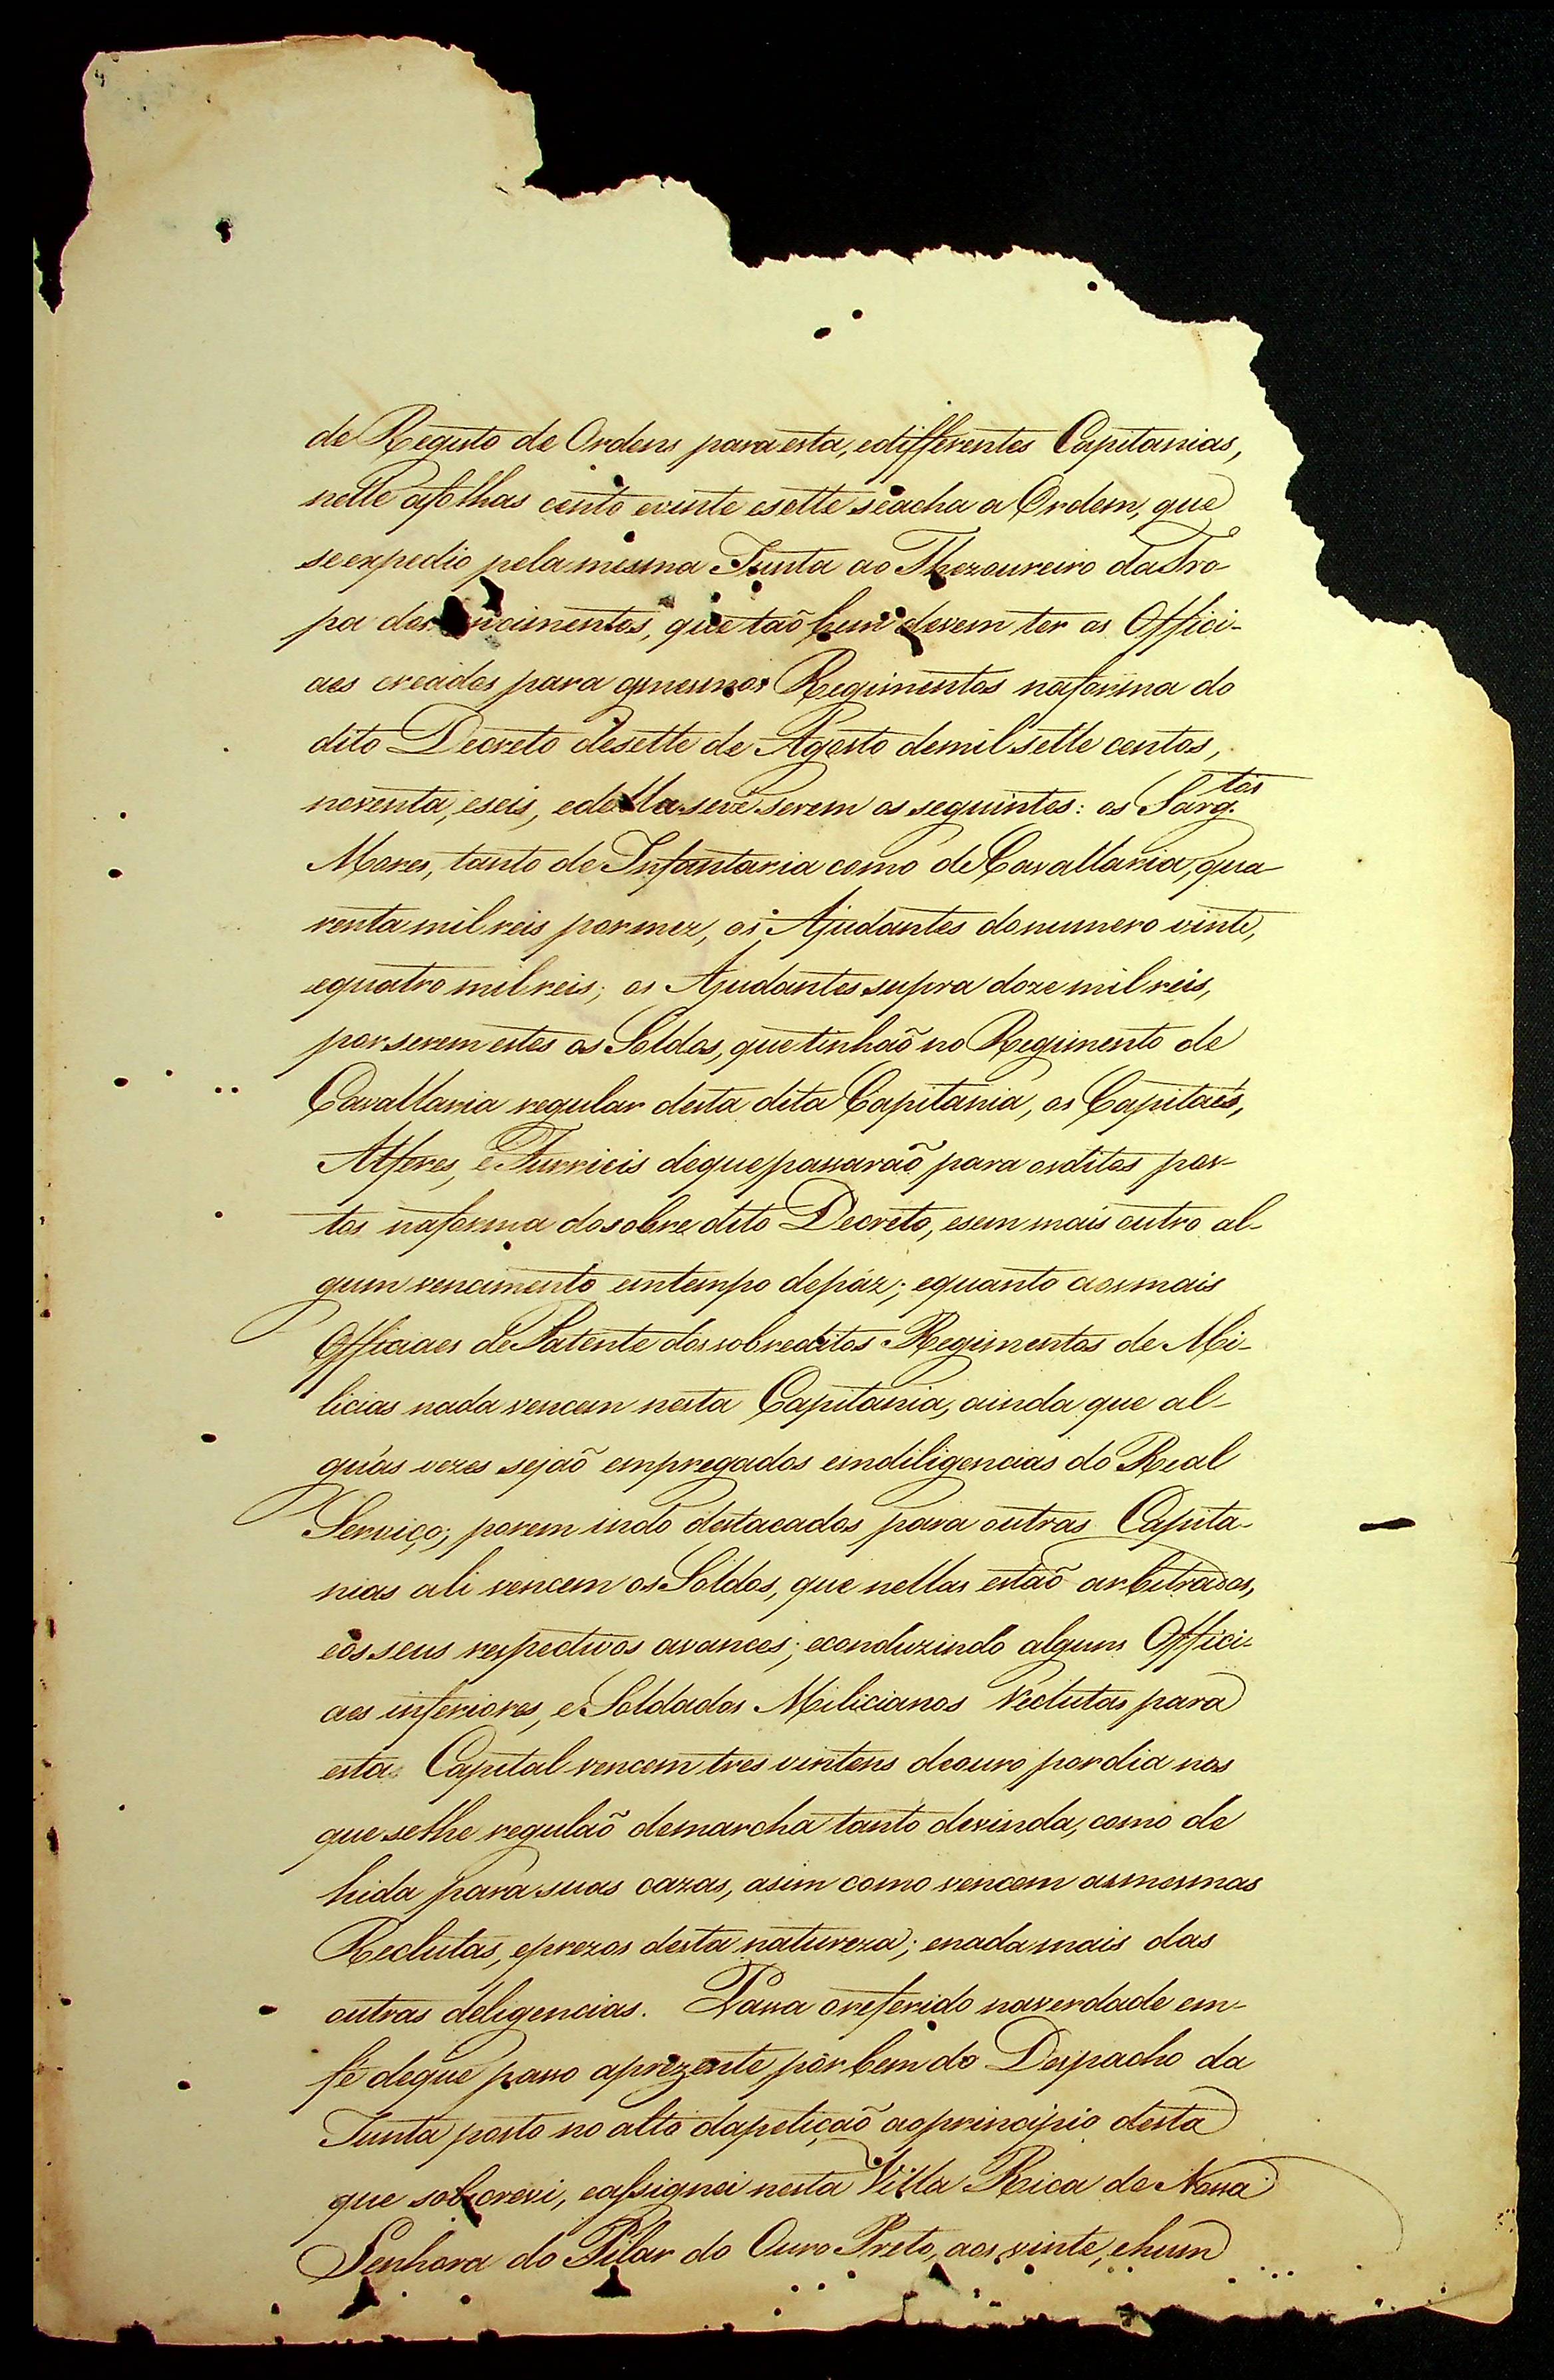 de Registo de Ordens para esta, e differentes Capitanias,
nelle afolhas cento evinte esette seacha a Ordem, que
seexpedio pela mesma Junta ao Thezoureiro daTro-
pa dos ncimentos, que taõ bem devem ter os Offici-
aes creados para osmesmos Regimentos naforma do
dito Decreto desette de Agosto demil sette centos,
noventa, eseis, edella sevê serem os seguintes: os Sarg.tos
Mores, tanto de Infantaria como de Cavallaria, qua-
renta mil reis pormez, os Ajudantes donumero vinte,
equatro mil reis; os Ajudantes supra doze mil reis,
porserem estes os Soldos, que tinhaõ no Regimento de
Cavallaria regular desta dita Capitania, os Capitaẽs,
Alferes, e Furrieis deque passaraõ para osditos pos-
tos naforma dosobre dito Decreto, esem mais outro al-
gum vencimento emtempo depáz; equanto aosmais
Officiaes de Patente dos sobreditos Regimentos de Mi-
licias nada vencem nesta Capitania, ainda que al-
guãs vezes sejaõ empregados emdiligencias do Real
Serviço; porem indo destacados para outras Capita-
nias ali vencem os Soldos, que nellas estaõ arbitrados,
eos seus respectivos avances; econduzindo alguns Offici-
aes inferiores, e Soldados Milicianos Reclutas para
esta Capital vencem tres vintens deouro pordia nos
que selhe regulaõ demarcha tanto devinda, como de
hida para suas cazas, asim como vencem asmesmas
Reclutas, eprezos desta natureza; enada mais das
outras deligencias. Passa oreferido naverdade em-
fé deque passo aprezente por bem do Despacho da
Junta posto no alto dapetiçaõ aoprincipio desta
que sobscrevi, eassignei nesta Villa Rica de Nossa
Senhora do Pilar do Ouro Preto, aos vinte, ehum